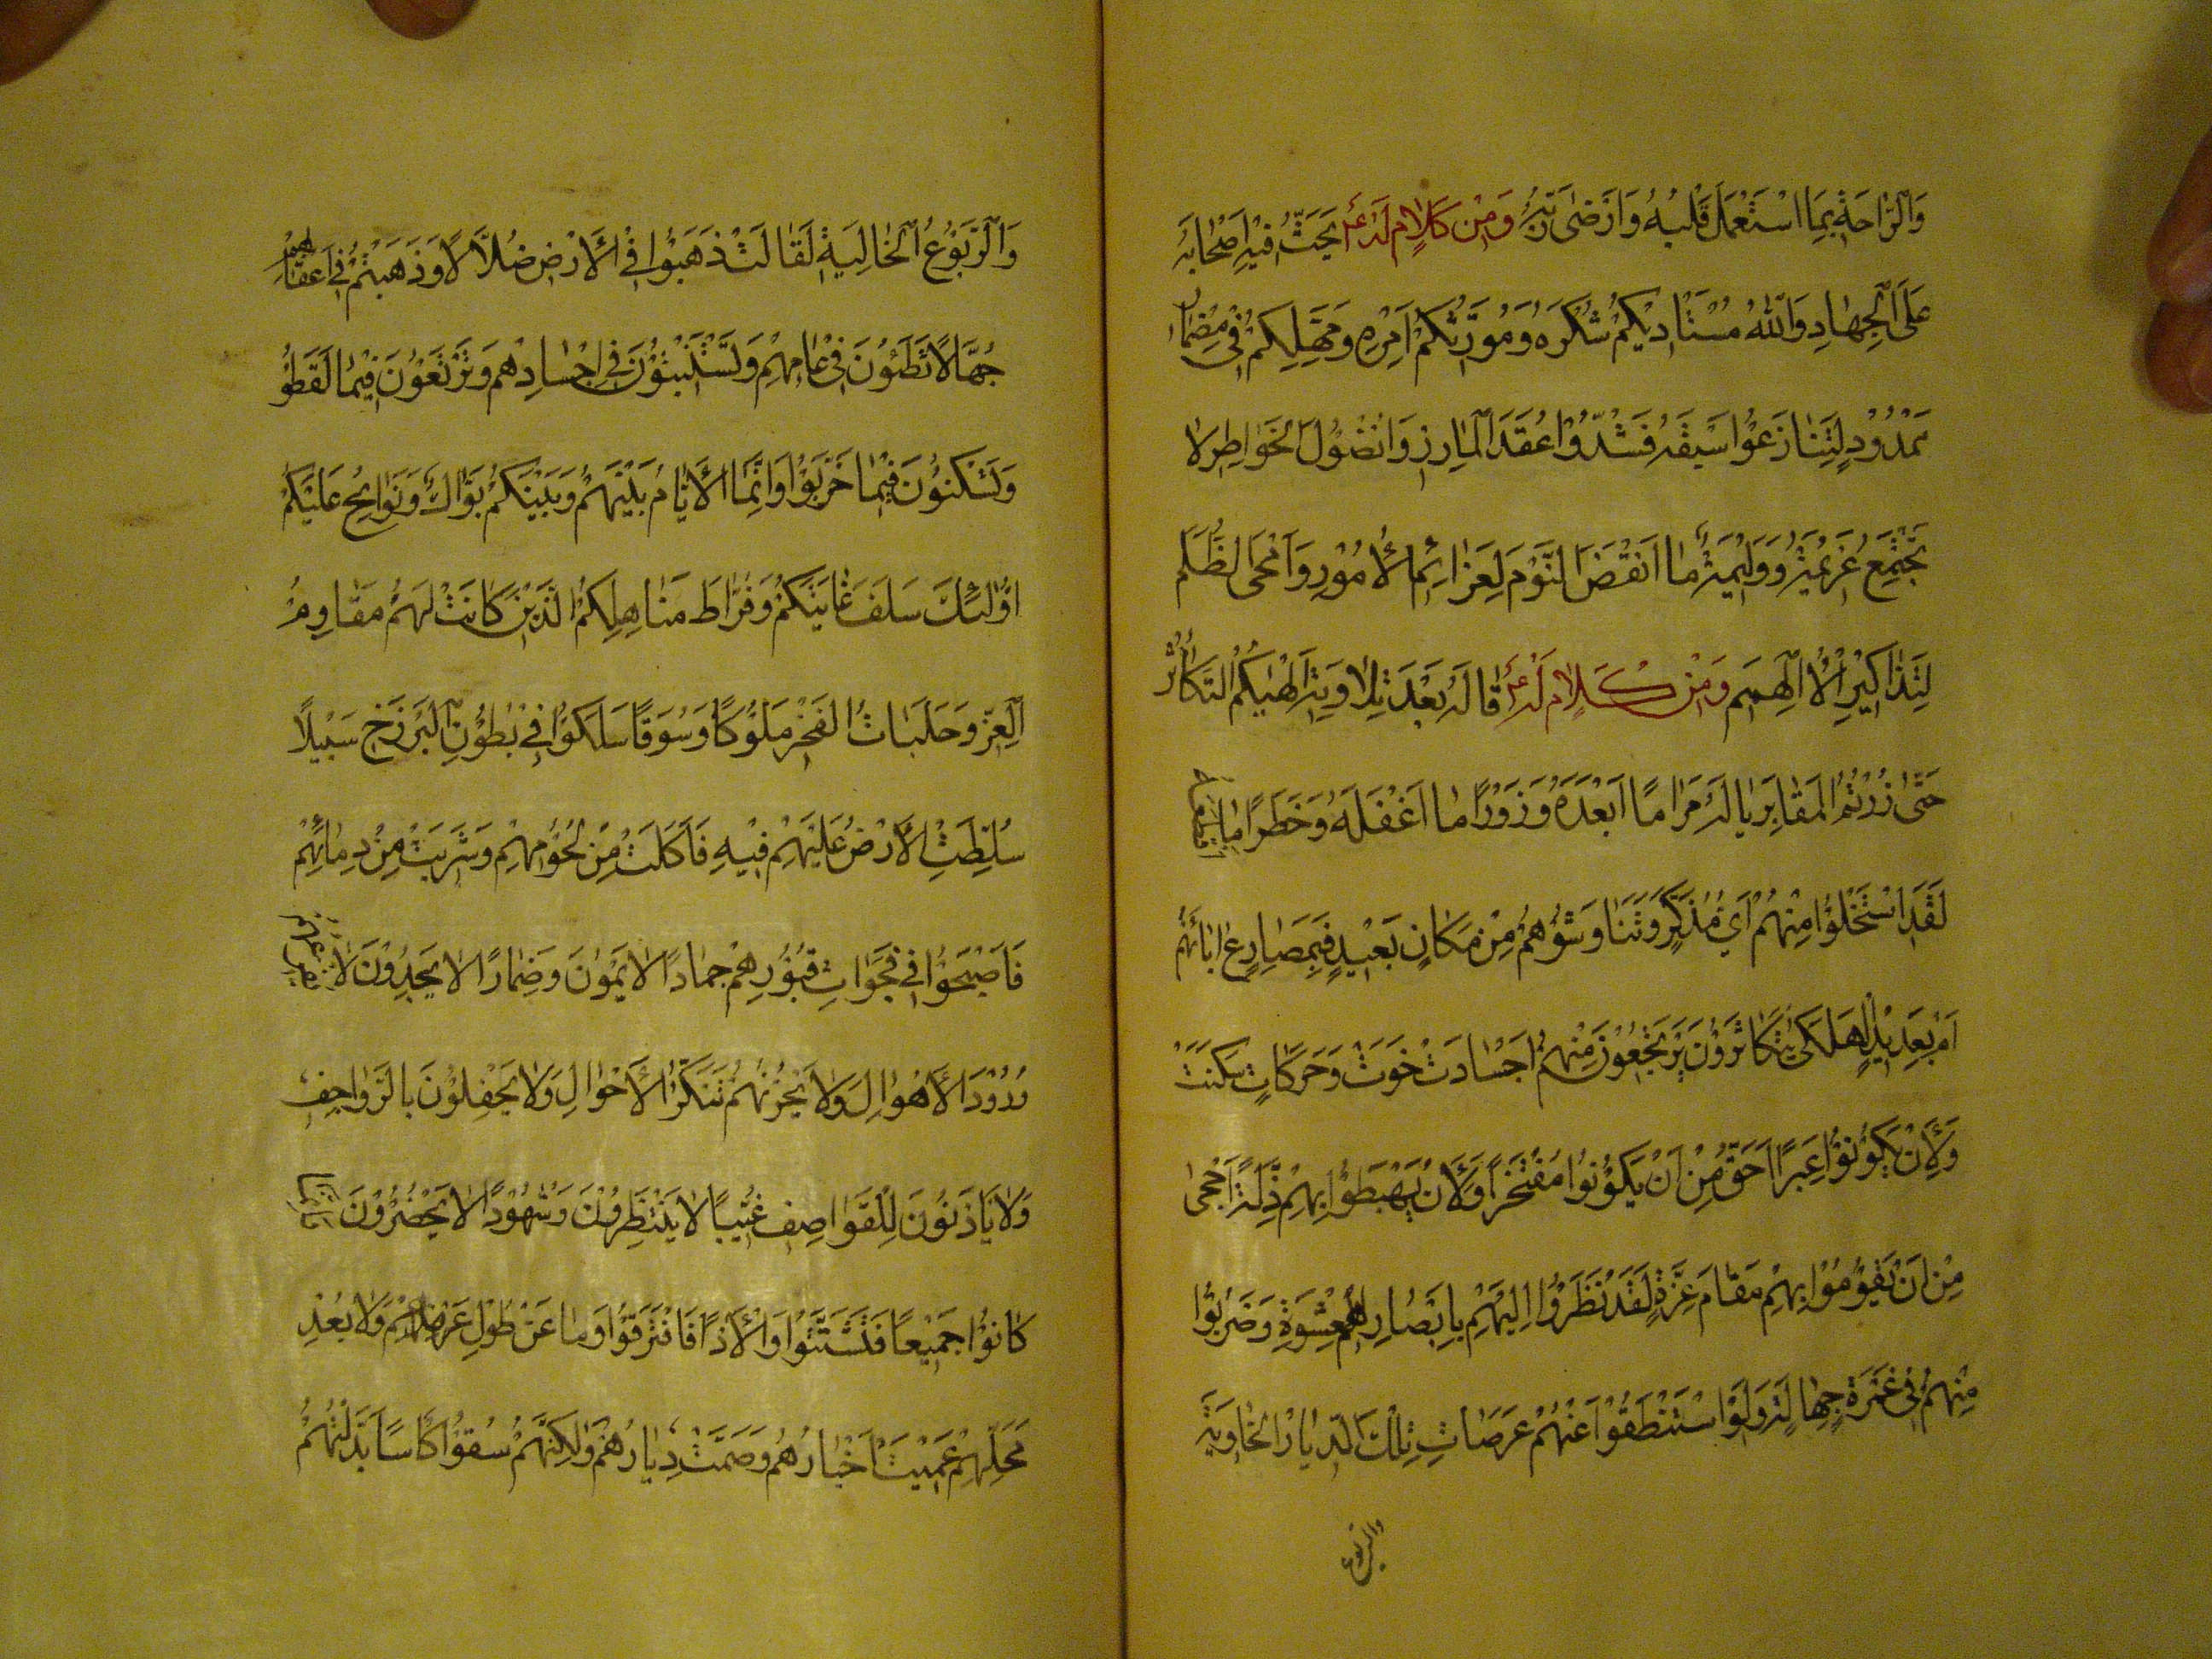 وَالرَّاحَةِ بِمَا اسْتَعْمَلَ قَلْبَهُ وَاَرْضٰى رَبَّهُ وَمِنْ كَلَامٍ لَهُ ع يَحُثُّ فِيهِ اَصْحَابَهُ
عَلَى الْجِهَادِ وَاللّٰهُ مُسْتَأْدِيكُمْ شُكْرَهُ وَمُوَرِّثُكُمْ اَمْرَهُ وَمُمَهِّلُكُمْ فِي مِضْمَارٍ
مَمْدُودٍ لِتَتَنَازَعُوا سَبَقَهُ فَشُدُّوا عُقَدَ الْمَآرِزِ وَاطْوُوا فُضُولَ الْخَوَاصِرِ لَا
تَجْتَمِعُ عَزِيمَةٌ وَوَلِيمَةٌ مَا اَنْقَضَ النَّوْمَ لِعَزَائِمِ الْاُمُورِ وَاَمْحَى الظُّلَمَ
لِتَذَاكِيرِ الْهِمَمِ وَمِنْ كَلَامٍ لَهُ ع قَالَهُ بَعْدَ تِلَاوَتِهِ اَلْهٰيكُمُ التَّكَاثُرُ
حَتّٰى زُرْتُمُ الْمَقَابِرَ يَا لَهُ مَرَامًا مَا اَبْعَدَهُ وَزَوْرًا مَا اَغْفَلَهُ وَخَطَرًا مَا اَفْظَعَهُ
لَقَدِ اسْتَخْلَوْا مِنْهُمْ اَيَّ مُذَّكِرٍ وَتَنَاوَشُوهُمْ مِنْ مَكَانٍ بَعِيدٍ اَفَبِمَصَارِعِ اٰبَائِهِمْ
اَمْ بِعَدِيدِ الْهَلْكٰى يَتَكَاثَرُونَ يَرْتَجِعُونَ مِنْهُمْ اَجْسَادًا خَوَتْ وَحَرَكَاتٍ سَكَنَتْ
وَلَاَنْ يَكُونُوا عِبَرًا اَحَقُّ مِنْ اَنْ يَكُونُوا مُفْتَخَرًا وَلَاَنْ يَهْبِطُوا بِهِمْ ذِلَّةً اَحْجٰى
مِنْ اَنْ يَقُومُوا بِهِمْ مَقَامَ عِزَّةٍ لَقَدْ نَظَرُوا اِلَيْهِمْ بِاَبْصَارِهِمُ الْعَشْوَةِ وَضَرَبُوا
مِنْهُمْ فِي غَمْرَةِ جَهَالَةٍ وَلَوِ اسْتَنْطَقُوا عَنْهُمْ عَرَصَاتِ تِلْكَ الدِّيَارِ الْخَاوِيَةِ
والربوع
وَالرُّبُوعُ الْخَالِيَةِ لَقَالَتْ ذَهَبُوا فِي الْاَرْضِ ضُلَّالًا وَذَهَبْتُمْ فِي اَعْقَابِهِمْ
جُهَّالًا تَطَئُونَ فِي هَامِهِمْ وَتَسْتَنْبِتُونَ فِي اَجْسَادِهِمْ وَتَرْتَعُونَ فِيمَا لَفَظُوا
وَتَسْكُنُونَ فِيمَا خَرَّبُوا وَاِنَّمَا الْاَيَّامُ بَيْنَهُمْ وَبَيْنَكُمْ بَوَاكٍ وَنَوَائِحُ عَلَيْكُمْ
اُولٰئِكَ سَلَفُ غَايَتِكُمْ وَفُرَّاطُ مَنَاهِلِكُمُ الَّذِينَ كَانَتْ لَهُمْ مَقَاوِمُ
الْعِزِّ وَحَلَبَاتُ الْفَخْرِ مُلُوكًا وَسُوَقًا سَلَكُوا فِي بُطُونِ الْبَرْزَخِ سَبِيلًا
سُلِّطَتِ الْاَرْضُ عَلَيْهِمْ فِيهِ فَاَكَلَتْ مِنْ لُحُومِهِمْ وَشَرِبَتْ مِنْ دِمَائِهِمْ
فَاَصْبَحُوا فِي فَجَوَاتِ قُبُورِهِمْ جَمَادًا لَا يَنْمُونَ وَضِمَارًا لَا يُوجَدُونَ لَا يُفْزِعُهُمْ
وُرُودُ الْاَهْوَالِ وَلَا يَحْزُنُهُمْ تَنَكُّرُ الْاَحْوَالِ وَلَا يَحْفِلُونَ بِالرَّوَاجِفِ
وَلَا يَأْذَنُونَ لِلْقَوَاصِفِ غُيَّبًا لَا يُنْتَظَرُونَ وَشُهُودًا لَا يَحْضُرُونَ
كَانُوا جَمِيعًا فَتَشَتَّتُوا وَاُلَّافًا فَافْتَرَقُوا وَمَا عَنْ طُولِ عَهْدِهِمْ وَلَا بُعْدِ
مَحَلِّهِمْ عَمِيَتْ اَخْبَارُهُمْ وَصَمَّتْ دِيَارُهُمْ وَلٰكِنَّهُمْ سُقُوا كَأْسًا بَدَّلَتْهُمْ